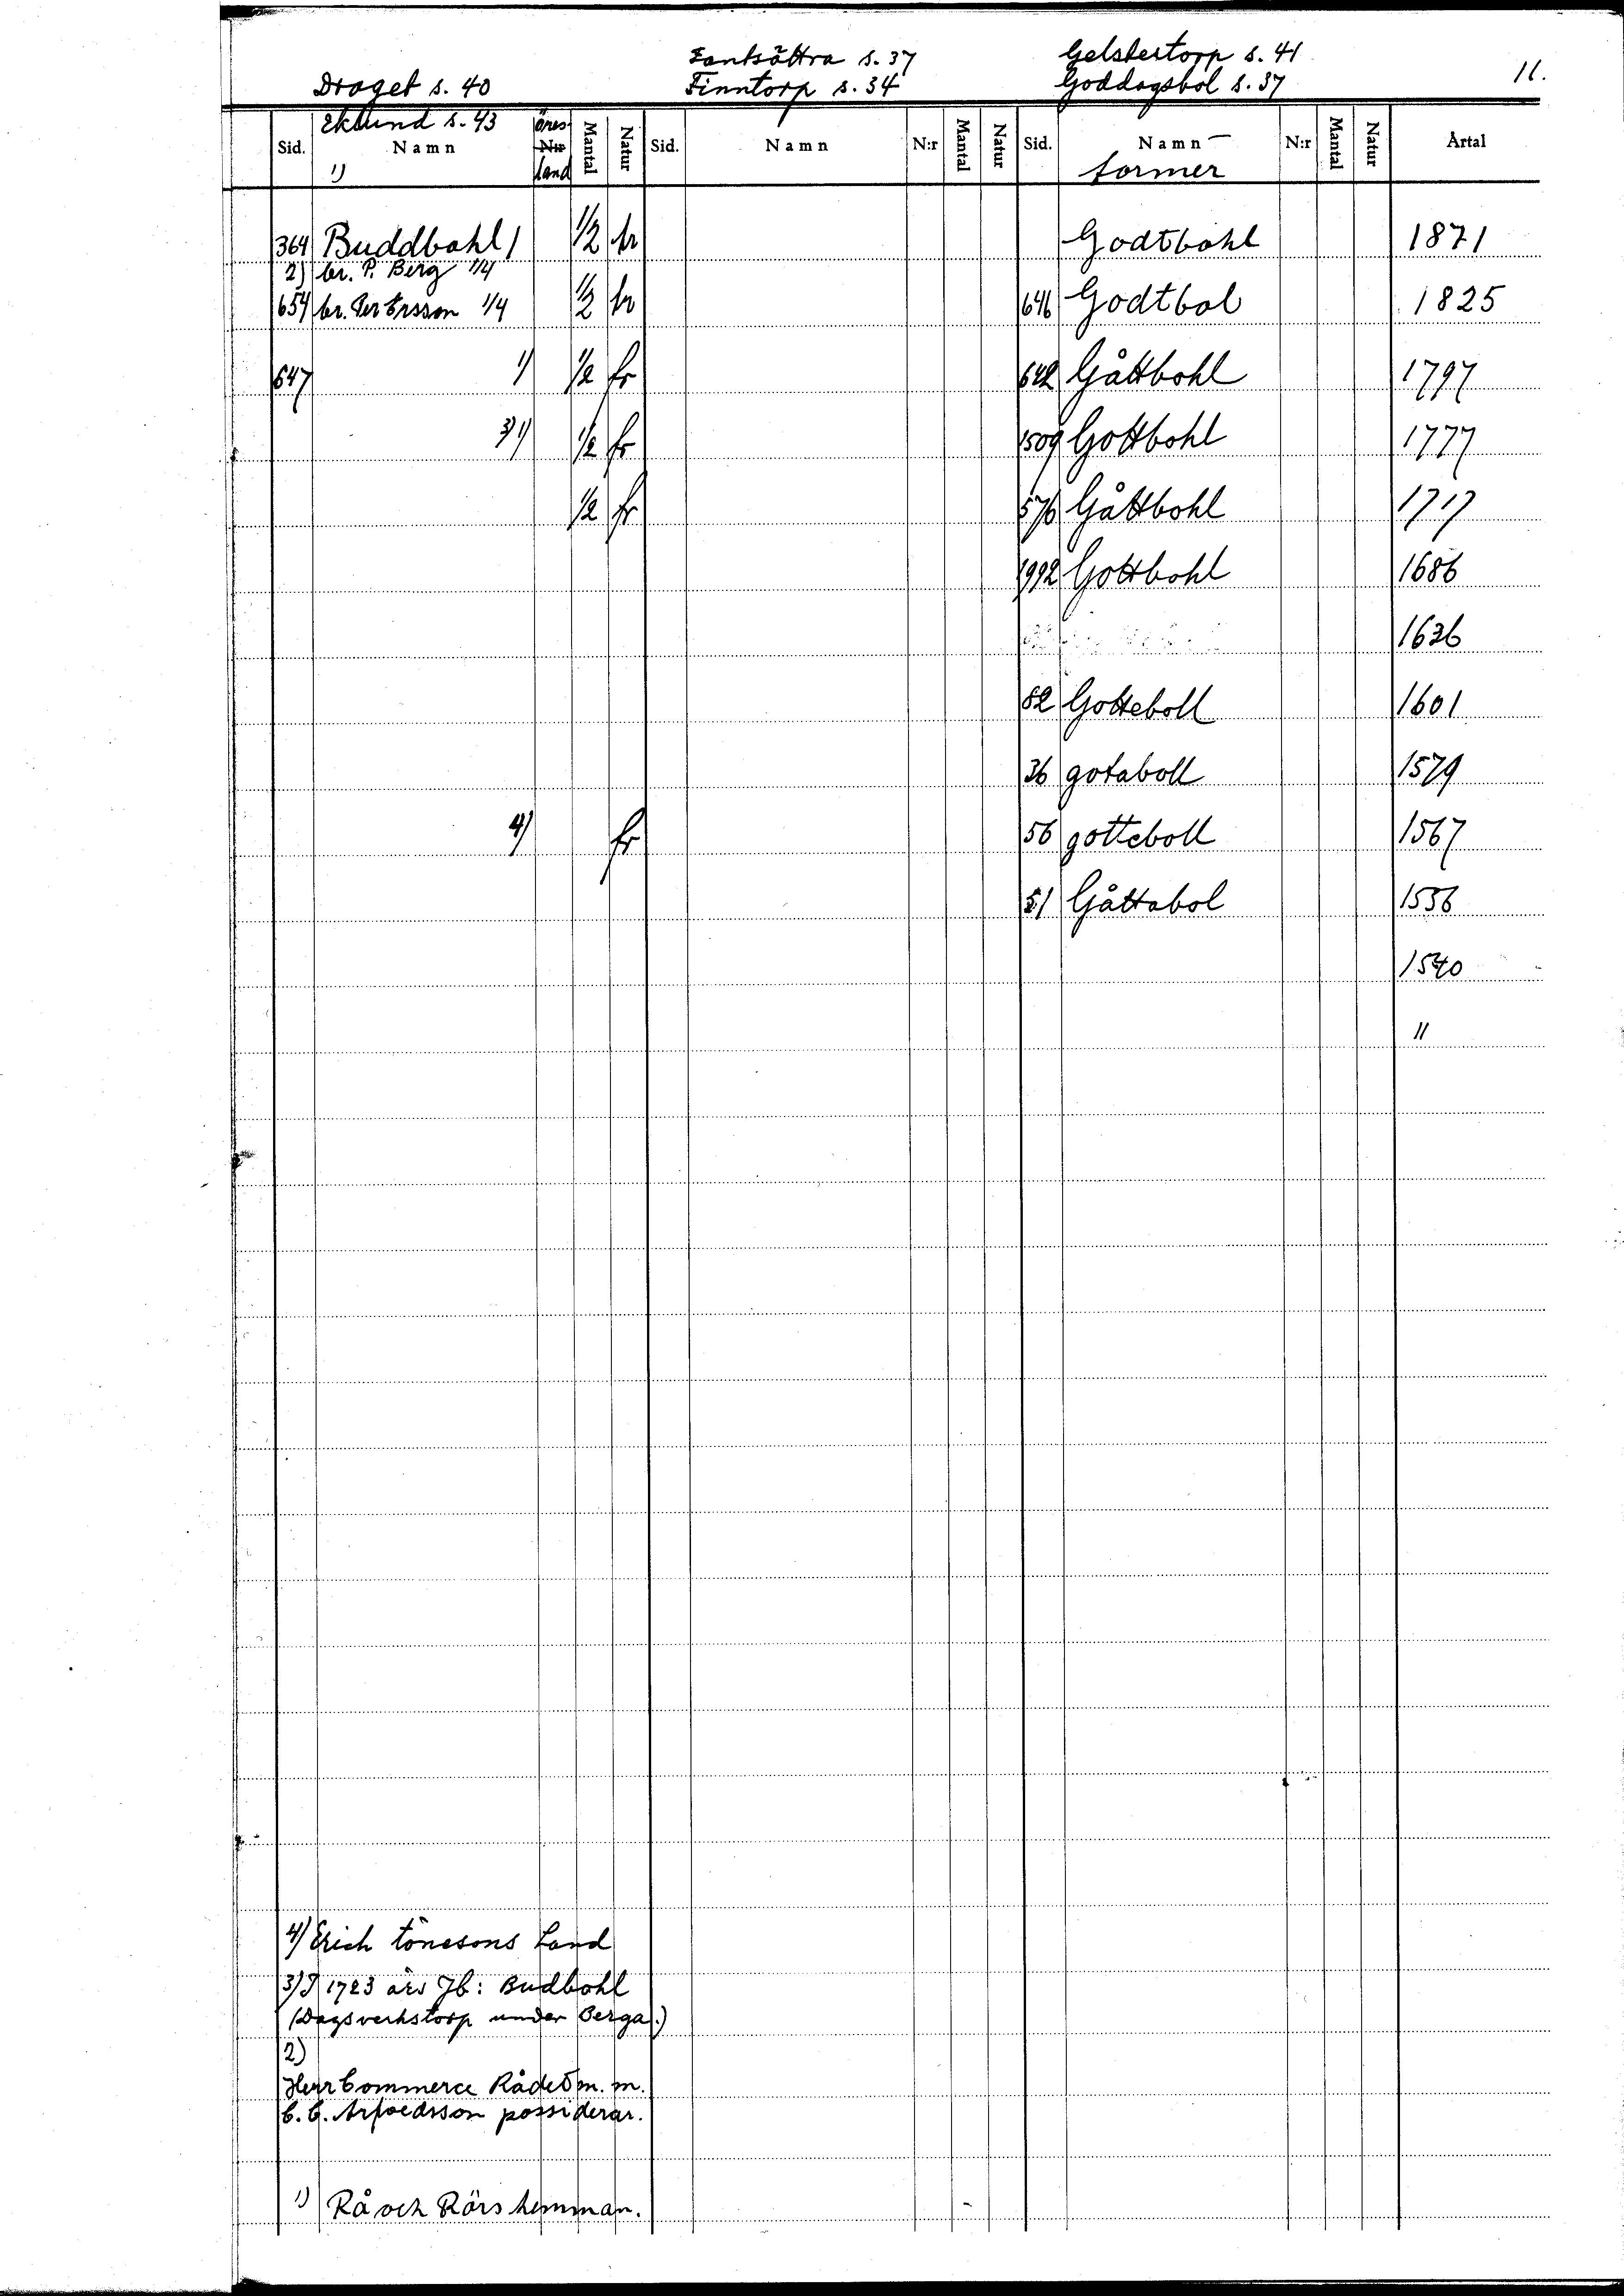 Draget s. 40
Fantsättra s. 37
Finntorp s. 34
Gelstertorp s. 41
Goddagsbol s. 37
11.
Eklund s. 43
Sid. Namn öres N:r land Mantal Natur Sid. Namn N:r Mantal Natur Sid. Namn- N:r Mantal Natur Årtal
1) former
364 Buddbohl 1/2 fr Godtbohl 1871
2) br. P. Berg 1/4
654 br. Per Ersson 1/4 1/2 fr 646 Godtbol 1825
647 1) 1/2 fr 642 Gåttbohl 1797
3) 1) 1/2 fr 1509 Gottbohl 1777
1/2 fr 576 Gåttbohl 1717
1992 Gottbohl 1686
1636
82 Gotteboll 1601
36 gotaboll 1579
4) fr 56 gotteboll 1567
51 Gåttabol 1556
1540
"
4) Erich tönesons Land
3) I 1723 års Jb: Budbohl
(Dagsverkstorp under Berga.)
2)
Herr Commerce Rådet m. m.
C. C. Arfvedsson possiderar.
1) Rå och Rörs hemman.